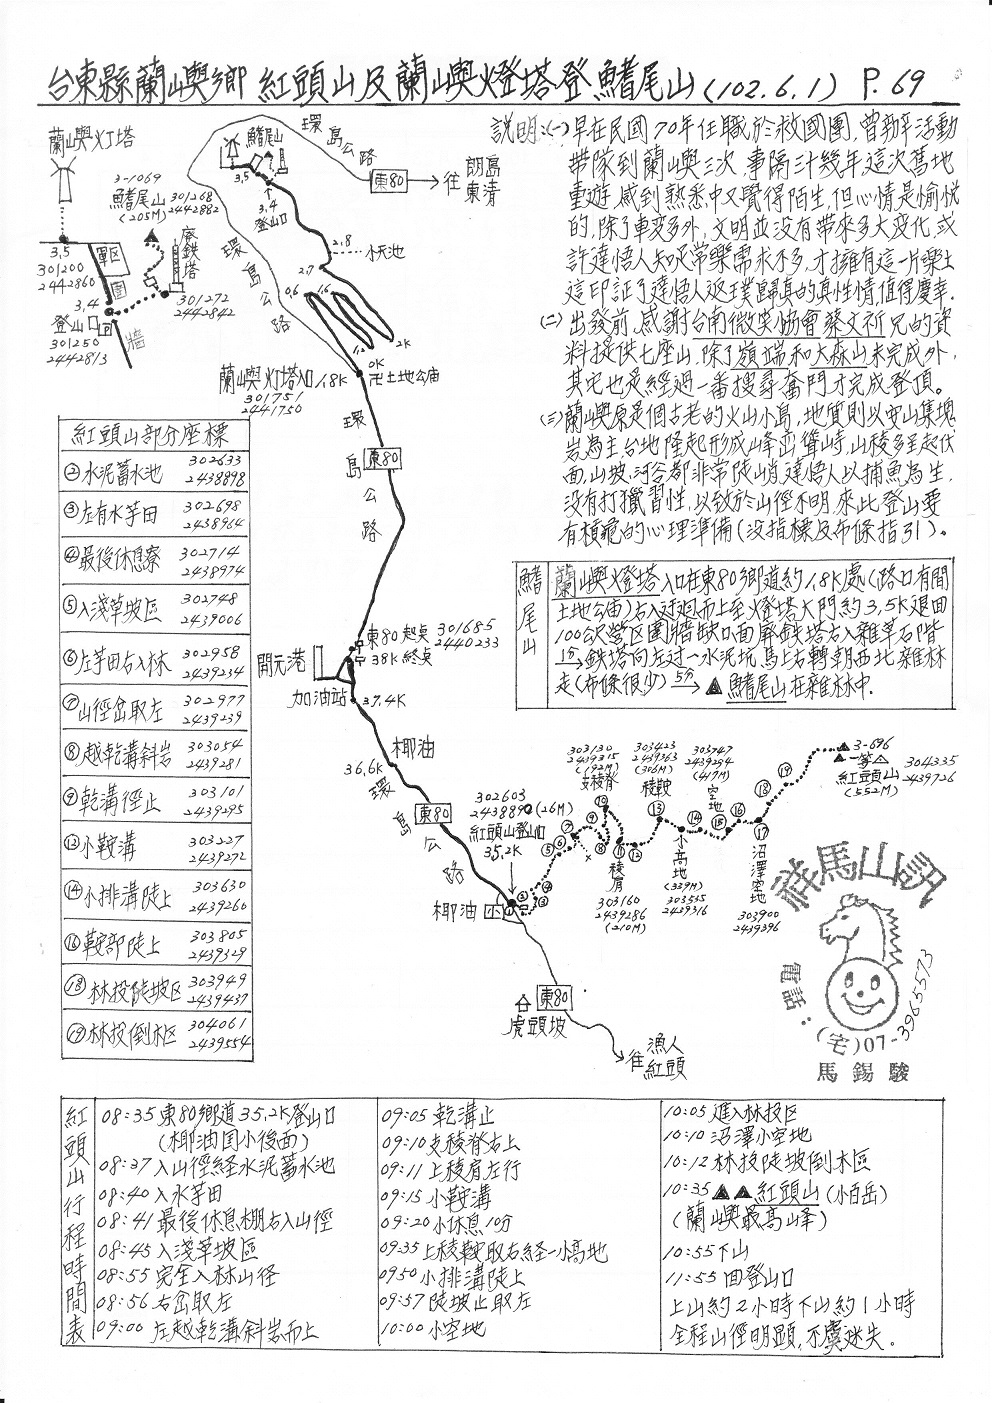 台東縣蘭嶼鄉 紅頭山及蘭嶼燈塔登鰭尾山(102.6.1) P.69
說明:(一)早在民國70年任職於救國團,曾辦活動
帶隊到蘭嶼三次,事隔卅幾年這次舊地
重遊,感到熟悉中又覺得陌生,但心情是愉悅
的,除了車変多外,文明並没有帶來多大変化,或
許達悟人知足常樂需求不多,才擁有這一片樂土
這印証了達悟人返璞歸真的真性情,值得慶幸.
(二)出發前,感謝台南微笑協會蔡文祈兄的資
料提供七座山,除了嶺端和大森山未完成外,
其它也是經過一番搜尋奮鬥才完成登頂。
(三)蘭嶼原是個古老的火山小島,地質則以安山集塊
岩為主台地隆起形成山峰巒聳峙,山稜多呈起伏
面,山坡,河谷都非常陡峭,達悟人以捕魚為生,
没有打獵習性,以致於山徑不明,來此登山要
有積極的心理準備(没指標及布條指引)。
鰭尾山
蘭嶼燈塔入口在東80鄉道約1.8K處(路口有間
土地公庙)右入迂迴而上至燈塔大門約3.5K退回
100公尺營区圍牆缺口面廢鉄塔右入雜草石階
1分→鉄塔向左过一水泥坑,馬上右轉朝西北雜林
走(布條很少)5分→▲鰭尾山在雜林中.
蘭嶼灯塔
3-1069
鰭尾山
(205M)
301268
2442882
廢鉄塔
3.5
301200
2442860
軍区
圍
牆
3.4
登山口
301250
2442813
301272
2442842
鰭尾山
3.5
3.4
登山口
環島公路
東80
往 朗島
東清
2.8
小天池
2.7
環島公路
0.6
1.6
1.2
2K
0K
卍土地公庙
蘭嶼灯塔入口1.8K
301751
2441750
環島公路
東80
東80起点 301685
2440233
38K終点
開元港
加油站
37.4K
椰油
36.6K
環島公路
東80
302603
2438890(26M)
紅頭山登山口
35.2K
椰油国小
東80
虎頭坡
往 漁人
紅頭
303130
2439315
(192M)
支稜脊
303423
2439363
(306M)
稜鞍
303747
2439294
(417M)
空地
3-696
一等△
紅頭山
(552M)
304335
2439726
稜肩
303160
2439286
(210M)
小高地
(339M)
303535
2439316
沼澤空地
303900
2439396
紅頭山部分座標
②水泥蓄水池 302633 2438898
③左有水芋田 302698 2438964
④最後休息寮 302714 2438974
⑤入淺草坡區 302748 2439006
⑥左芋田右入林 302958 2439234
⑦山徑岔取左 302977 2439239
⑧越乾溝斜岩 303054 2439281
⑨乾溝徑止 303101 2439295
⑫小鞍溝 303227 2439272
⑭小排溝陡上 303630 2439260
⑯鞍部陡上 303805 2439329
⑱林投陡坡区 303949 2439437
⑲林投倒木区 304061 2439554
祥馬山訊
電話:(宅)07-3965573
馬錫駿
紅頭山行程時間表
08:35東80鄉道35.2K登山口
(椰油国小後面)
08:37入山徑経水泥蓄水池
08:40入水芋田
08:41最後休息棚右入山徑
08:45入淺草坡區
08:55完全入林山径
08:56右岔取左
09:00左越乾溝斜岩而上
09:05乾溝止
09:10支稜脊右上
09:11上稜肩左行
09:15小鞍溝
09:20小休息10分
09:35上稜鞍取右経一小高地
0950小排溝陡上
09:57陡坡止取左
10:00小空地
10:05進入林投区
10:10沼澤小空地
10:12林投陡坡倒木區
10:35▲▲紅頭山(小百岳)
(蘭嶼最高峰)
10:55下山
11:55回登山口
上山約2小時下山約1小時
全程山徑明顯,不虞迷失。